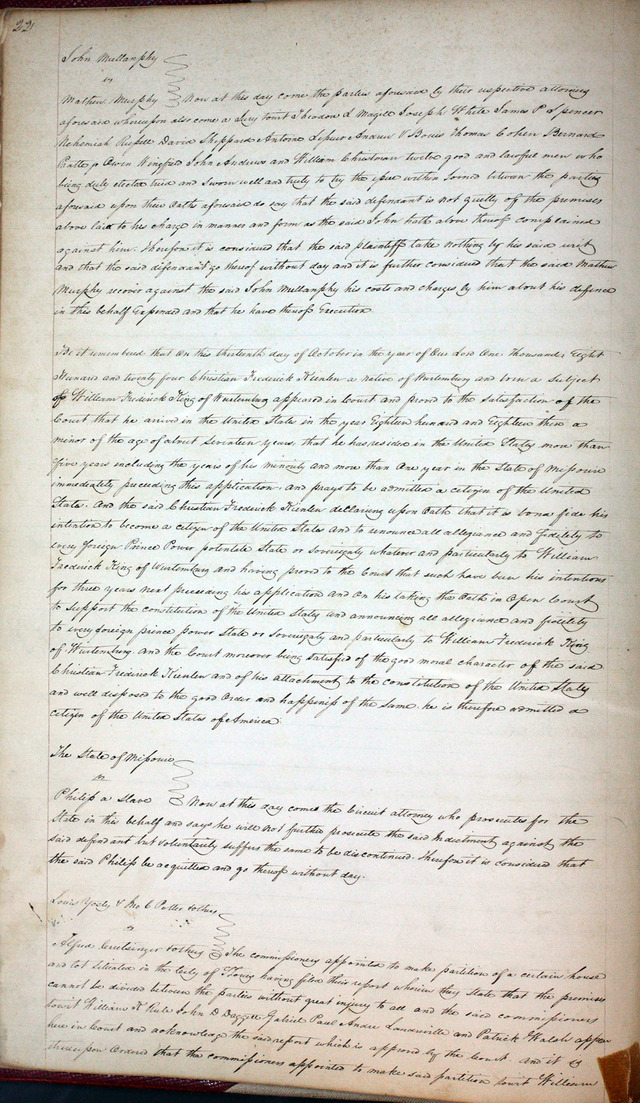 22
John Mullanphy
vs
Mathew Murphy Now at this day come the parties aforesaid by their respective attorneys
aforesaid whereupon also come a Jury towit Theodore L Magill Joseph White James P Spencer
Nehemiah Russell David Sheppard Antoine Andrew P Bouis Thomas Cohen Bernard
Pratte jr Owen Wingfield John Andrews and William Christman twelve good and lawful men who
being duly elected tried and sworn well and truly to try the issue within Joined between the parties
aforesaid upon their Oaths aforesaid do say that the said defendant is not guilty of the premises
above laid to his charge in manner and form as the said John hath above thereof complained
against him. Therefore it is considered that the said plaintiff take nothing by his said writ
and that the said defendant go thereof without day and it is further considered that the said Mathew
Murphy recover against the said John Mullanphy his costs and charges by him about his defence
in this behalf Expended and that he have thereof Execution
Be it remembered that on this thirteenth day of October in the year of Our Lord One Thousand Eight
Hundred and twenty four Christian Frederick Kienlen a native of Wurtemburg and born a Subject
of William Frederick King of Wurtemburg appeared in Court and proved to the satisfaction of the
Court that he arrived in the United States in the year Eighteen hundred and Eighteen then a
minor of the age of about seventeen years, that he has resided in the United States more than
five years including the years of his minority and more than One year in the State of Missouri
immediately preceding this application. and prays to be admitted a citizen of the United
States. And the said Christian Frederick Kienlen declaring upon Oath that it is bona fide his
intention to become a citizen of the United States and to renounce all allegiance and fidelity to
every foreign Prince Power potentate State or Sovereignty whatever and particularly to William
Frederick King of Wurtemburg and having proved to the Court that such have been his intentions
for three years next preceding his application and on his taking the Oath in Open Court
to support the constitution of the United States and announcing all allegiance and fidelity
to every foreign prince power State or Sovereignty and particularly to William Frederick King
of Wurtemburg and the Court moreover being satisfied of the good moral character of the said
Christian Frederick Kienlen and of his attachment to the constitution of the United States
and well disposed to the good Order and happiness of the same. he is therefore admitted a
citizen of the United States of America.
The State of Missouri
vs
Philip a Slave Now at this day comes the Circuit attorney who prosecutes for the
State in this behalf and says he will not further prosecute the said Indictment against the
said defendant but voluntarily suffers the same to be discontinued. Therefore it is considered that
the said Philip be acquitted and go thereof without day.
Louis Yosty & Jno C Potter & others
vs
Alfred & others The commissioners appointed to make partition of a certain house
and lot situated in the City of St Louis having filed their report wherein they State that the premises
cannot be divided between the parties without great injury to all and the said commissioners
towit William K Rule John D Daggett Gabriel Paul Andre Landreville and Patrick Walsh appear
here in Court and acknowledge the said report which is approved by the Court. and it is
thereupon Ordered that the commissioners appointed to make said partition towit William